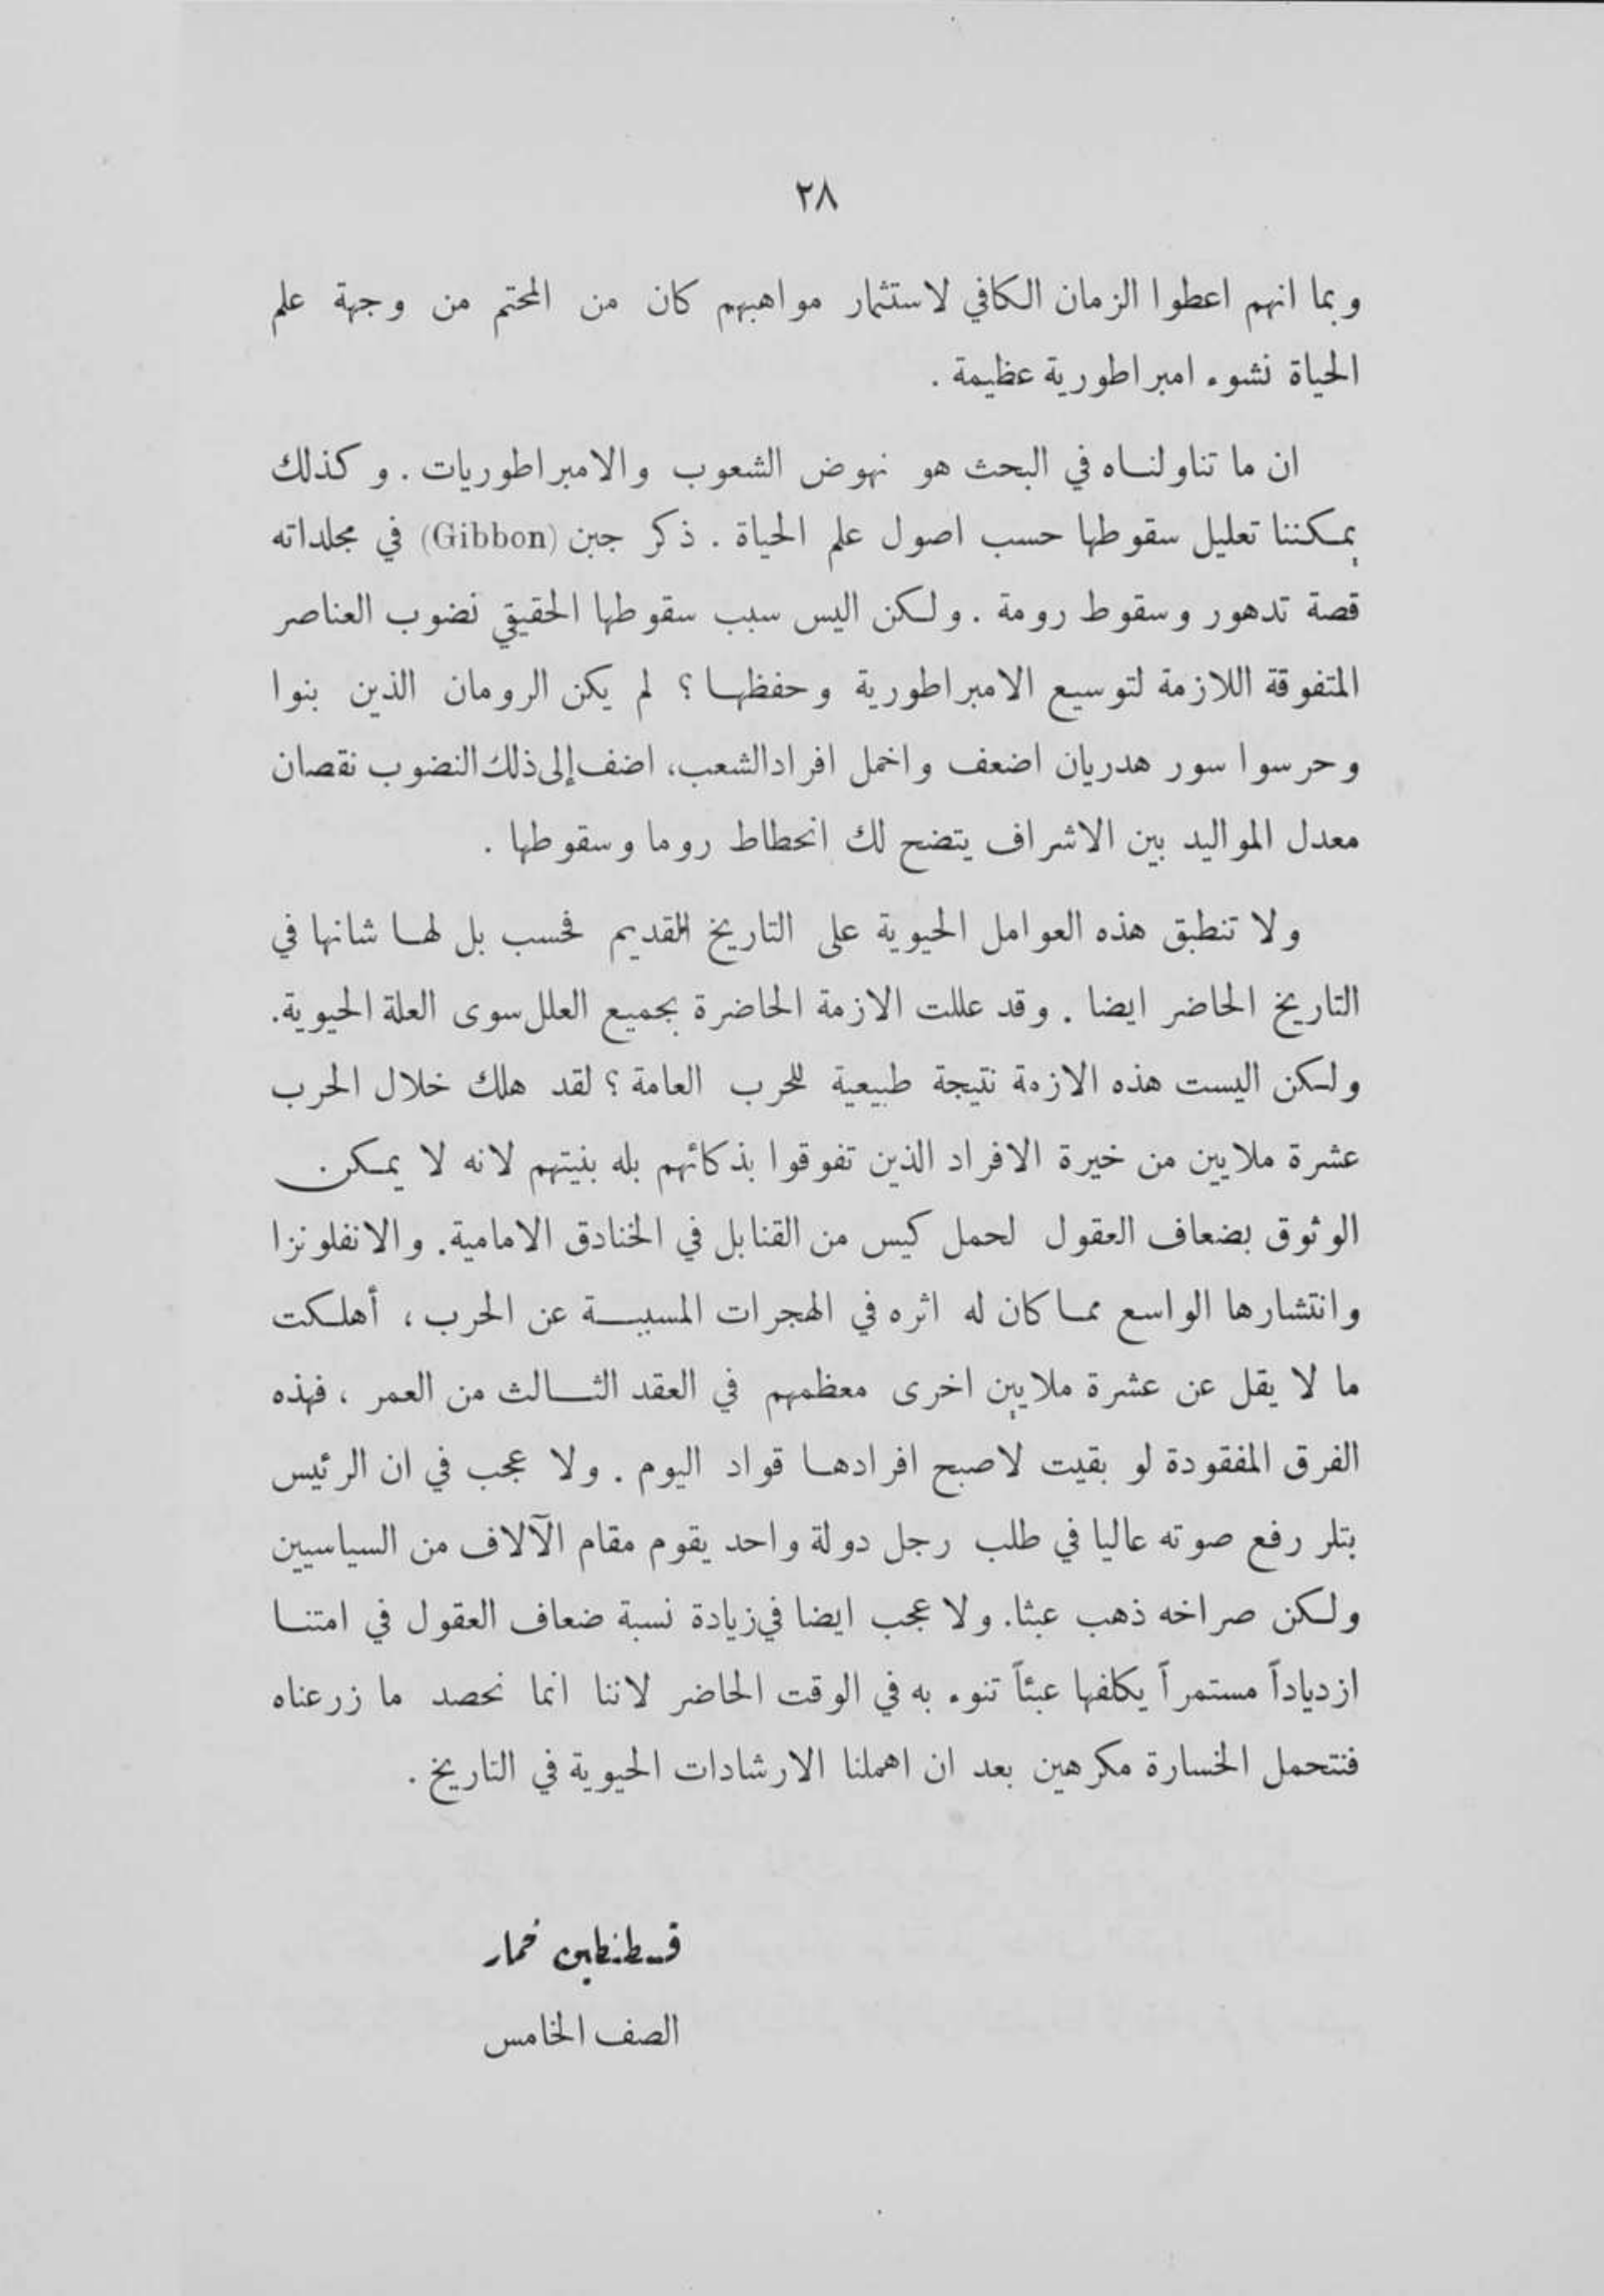 ٢٨
وبما انهم اعطوا الزمان الكافي لاستثمار مواهبهم كان من المحتم من وجهة علم
الحياة نشوء امبراطورية عظيمة .
ان ما تناولناه في البحث هو نهوض الشعوب والامبراطوريات . وكذلك
يمكننا تعليل سقوطها حسب اصول علم الحياة . ذكر جبن (Gibbon) في مجلداته
قصة تدهور وسقوط رومة . ولكن اليس سبب سقوطها الحقيقي نضوب العناصر
المتفوقة اللازمة لتوسيع الامبراطورية وحفظها ؟ لم يكن الرومان الذين بنوا
وحرسوا سور هدريان اضعف واخمل افراد الشعب، اضف إلى ذلك النضوب نقصان
معدل المواليد بين الاشراف يتضح لك انحطاط روما وسقوطها .
ولا تنطبق هذه العوامل الحيوية على التاريخ القديم فحسب بل لها شانها في
التاريخ الحاضر ايضا . وقد عللت الازمة الحاضرة بجميع العلل سوى العلة الحيوية.
ولكن اليست هذه الازمة نتيجة طبيعية للحرب العامة ؟ لقد هلك خلال الحرب
عشرة ملايين من خيرة الافراد الذين تفوقوا بذكائهم بله بنيتهم لانه لا يمكن
الوثوق بضعاف العقول لحمل كيس من القنابل في الخنادق الامامية. والانفلونزا
وانتشارها الواسع مما كان له اثره في الهجرات المسببة عن الحرب ، أهلكت
ما لا يقل عن عشرة ملايين اخرى معظمهم في العقد الثالث من العمر ، فهذه
الفرق المفقودة لو بقيت لاصبح افرادها قواد اليوم . ولا عجب في ان الرئيس
بتلر رفع صوته عاليا في طلب رجل دولة واحد يقوم مقام الآلاف من السياسيين
ولكن صراخه ذهب عبثا. ولا عجب ايضا في زيادة نسبة ضعاف العقول في امتنا
ازدياداً مستمراً يكلفها عبئاً تنوء به في الوقت الحاضر لاننا انما نحصد ما زرعناه
فنتحمل الخسارة مكرهين بعد ان اهملنا الارشادات الحيوية في التاريخ .
قسطنطين خمار
الصف الخامس